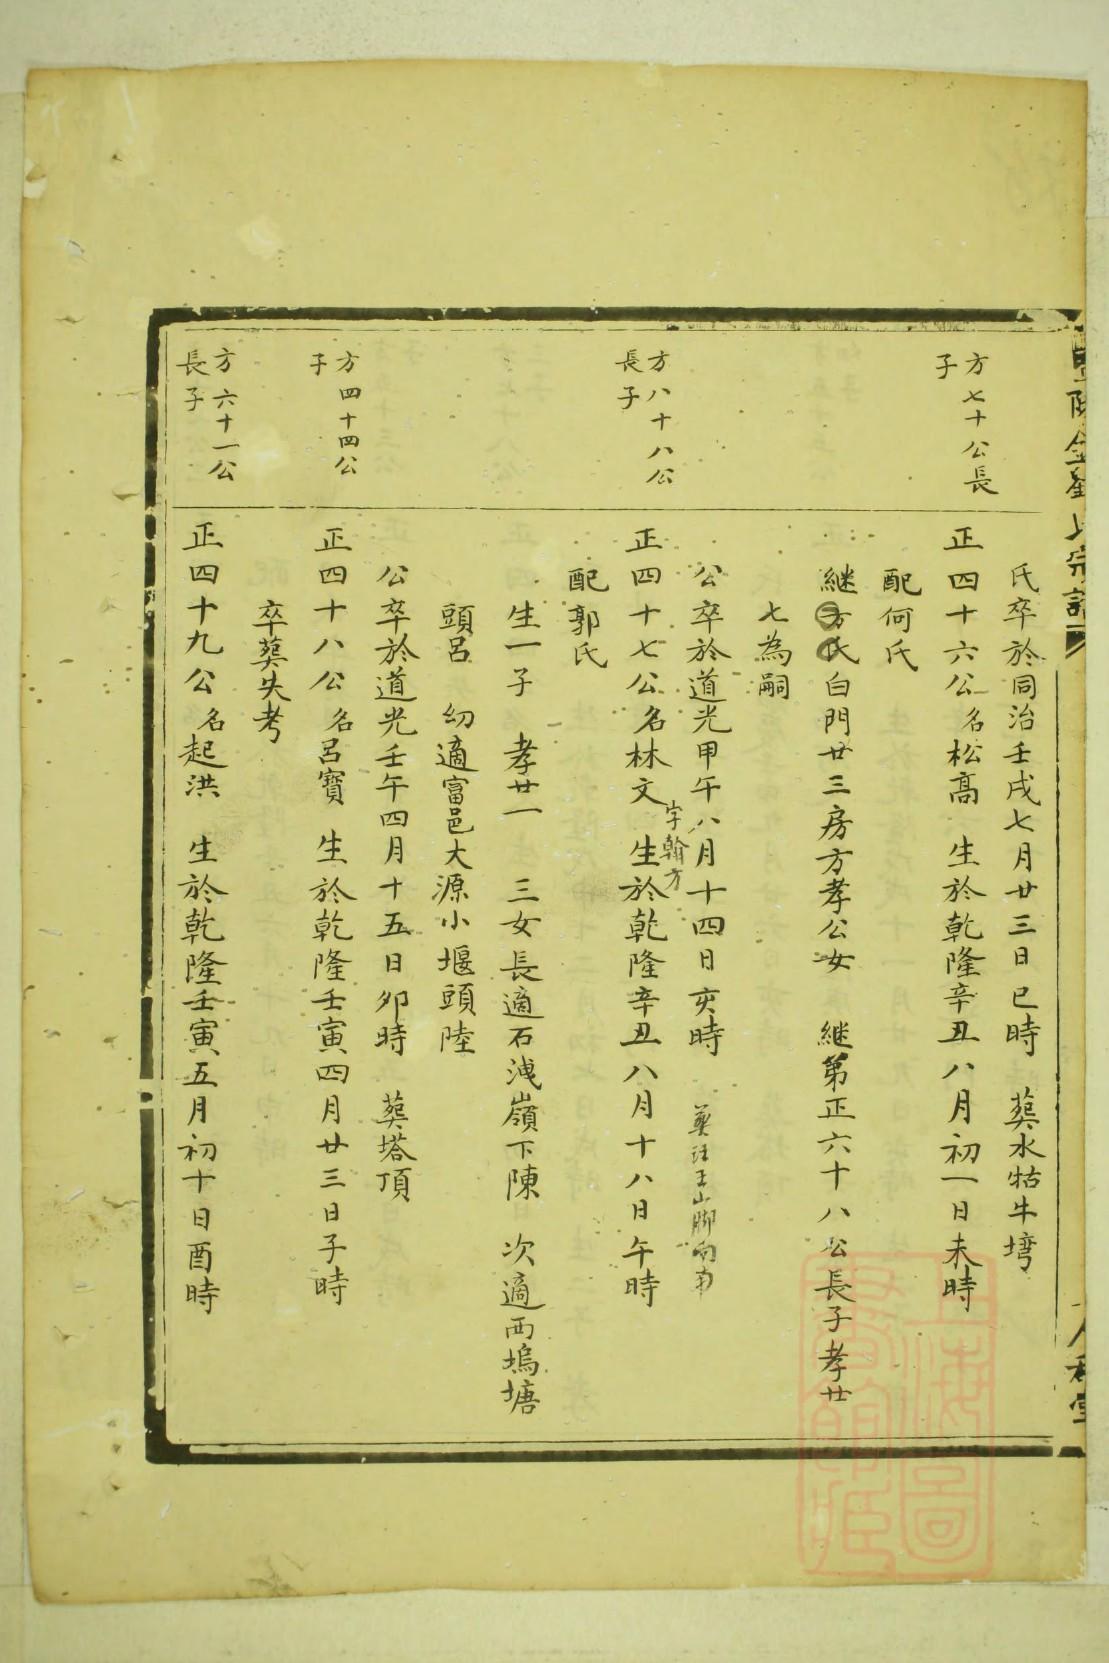 氏卒於同治壬戌七月廿三日巳時 葬水牯牛塆
方七十公長
子
正四十六公名松高 生於乾隆辛丑八月初一日未時
配何氏
継方氏白門廿三房方孝公女 継第正六十八公長子孝廿
七為嗣
公卒於道光甲午八月十四日亥時
方八十八公
長子
正四十七公名林文 生於乾隆辛丑八月十八日午時
字翰方
配郭氏
生一子 孝廿一 三女長適石洩嶺下陳 次適西塢塘
頭呂 幼適富邑大源小堰頭陸
公卒於道光壬午四月十五日卯時 葬塔頂
方四十四公
子
正四十八公名呂寶 生於乾隆壬寅四月廿三日子時
卒葬失考
方六十一公
長子
正四十九公名起洪 生於乾隆壬寅五月初十日酉時
上海圖
書館藏